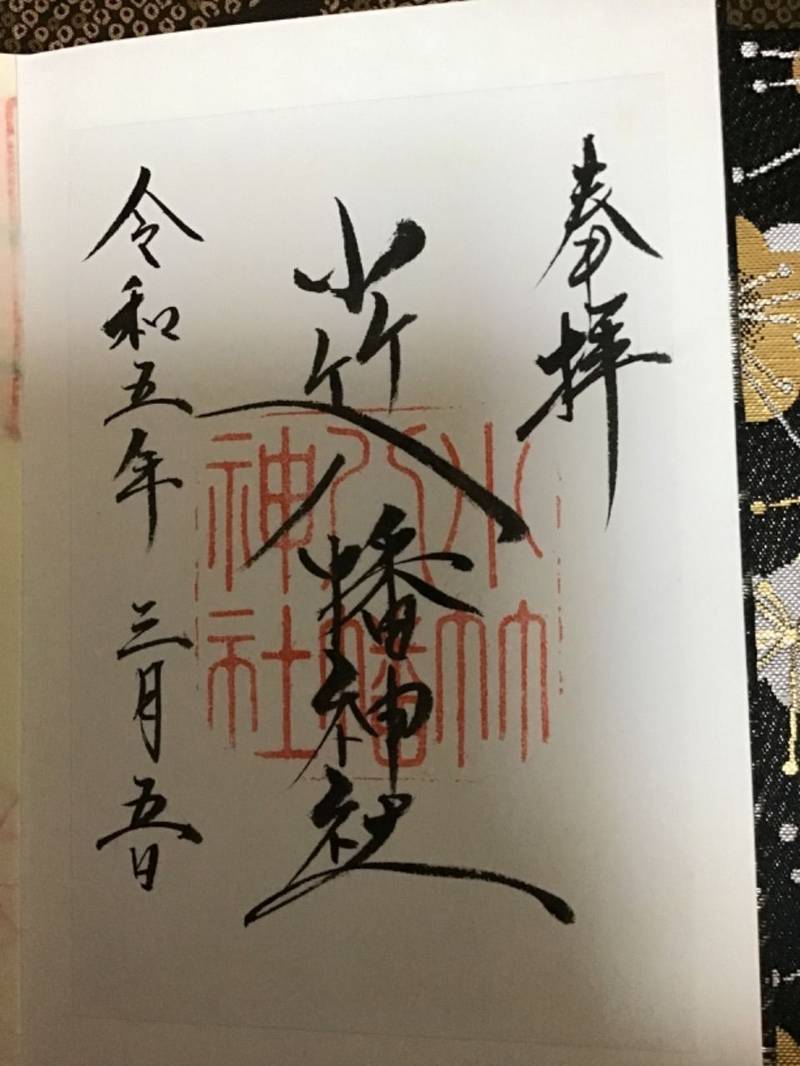 奉拝
小竹八幡神社
小竹
八幡
神社
令和五年 三月五日